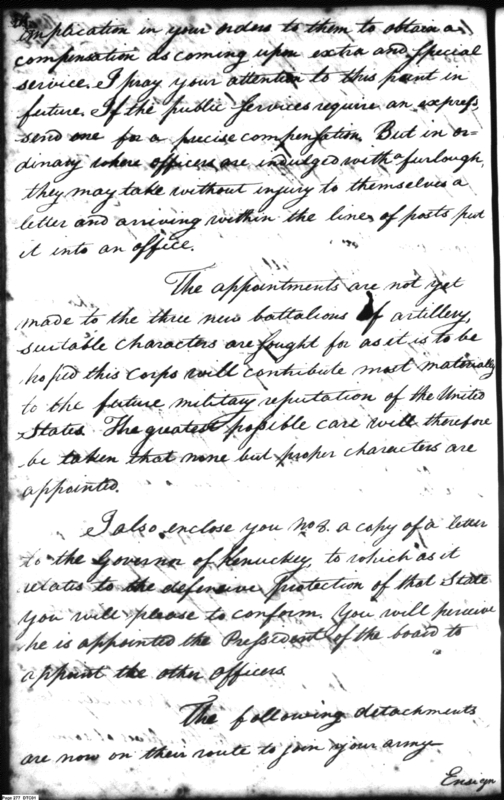 implication in your orders to them to obtain a
compensation as coming upon extra and special
service. I pray your attention to this point in
future. If the public services require an express
send one for a precise compensation. But in or-
dinary where officers are indulged with a furlough,
they may take without injury to themselves a
letter and arriving within the line of posts put
it into an office.
The appointments are not yet
made to the three new battalions of artillery,
suitable characters are sought for as it is to be
hoped this corps will contribute most materially
to the future military reputation of the United
States. The greatest possible care will therefore
be taken that none but proper characters are
appointed.
I also enclose you No 8. a copy of a letter
to the Governor of Kenuckey, to which as it
relates to the defensive protection of that State
you will please to conform. You will perceive
he is appointed the President of the board to
appoint the other officers.
The following detachments
are now on their route to join your army
Ensign
Page 277